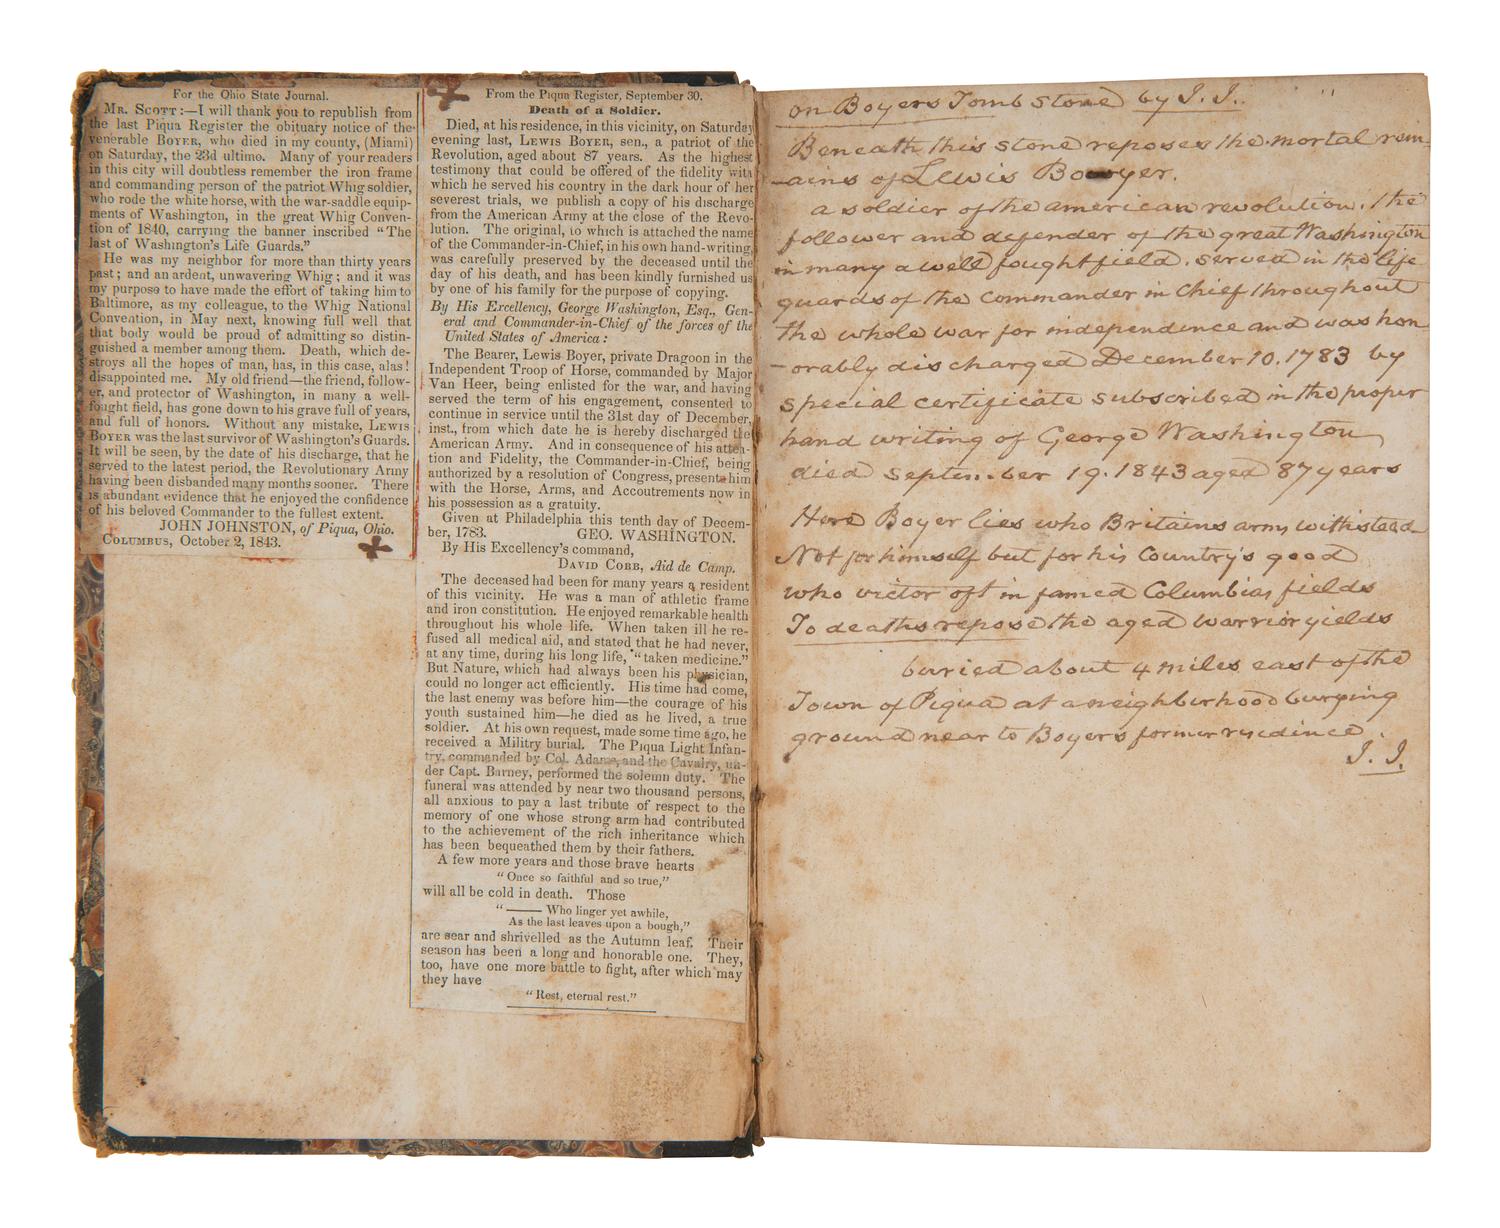 For the Ohio State Journal.
MR. SCOTT:—I will thank you to republish from
the last Piqua Register the obituary notice of the
venerable BOYER, who died in my county, (Miami)
on Saturday, the 23d ultimo. Many of your readers
in this city will doubtless remember the iron frame
and commanding person of the patriot Whig soldier,
who rode the white horse, with the war-saddle equip-
ments of Washington, in the great Whig Conven-
tion of 1840, carrying the banner inscribed "The
last of Washington's Life Guards."
He was my neighbor for more than thirty years
past; and an ardent, unwavering Whig; and it was
my purpose to have made the effort of taking him to
Baltimore, as my colleague, to the Whig National
Convention, in May next, knowing full well that
that body would be proud of admitting so distin-
guished a member among them. Death, which de-
stroys all the hopes of man, has, in this case, alas!
disappointed me. My old friend—the friend, follow-
er, and protector of Washington, in many a well-
fought field, has gone down to his grave full of years,
and full of honors. Without any mistake, LEWIS
BOYER was the last survivor of Washington's Guards.
It will be seen, by the date of his discharge, that he
served to the latest period, the Revolutionary Army
having been disbanded many months sooner. There
is abundant evidence that he enjoyed the confidence
of his beloved Commander to the fullest extent.
JOHN JOHNSTON, of Piqua, Ohio.
COLUMBUS, October 2, 1843.
From the Piqua Register, September 30.
Death of a Soldier.
Died, at his residence, in this vicinity, on Saturday
evening last, LEWIS BOYER, sen., a patriot of the
Revolution, aged about 87 years. As the highest
testimony that could be offered of the fidelity with
which he served his country in the dark hour of her
severest trials, we publish a copy of his discharge
from the American Army at the close of the Revo-
lution. The original, to which is attached the name
of the Commander-in-Chief, in his own hand-writing,
was carefully preserved by the deceased until the
day of his death, and has been kindly furnished us
by one of his family for the purpose of copying.
By His Excellency, George Washington, Esq., Gen-
eral and Commander-in-Chief of the forces of the
United States of America:
The Bearer, Lewis Boyer, private Dragoon in the
Independent Troop of Horse, commanded by Major
Van Heer, being enlisted for the war, and having
served the term of his engagement, consented to
continue in service until the 31st day of December,
inst., from which date he is hereby discharged the
American Army. And in consequence of his atten-
tion and Fidelity, the Commander-in-Chief, being
authorized by a resolution of Congress, presents him
with the Horse, Arms, and Accoutrements now in
his possession as a gratuity.
Given at Philadelphia this tenth day of Decem-
ber, 1783. GEO. WASHINGTON.
By His Excellency's command,
DAVID COBB, Aid de Camp.
The deceased had been for many years a resident
of this vicinity. He was a man of athletic frame
and iron constitution. He enjoyed remarkable health
throughout his whole life. When taken ill he re-
fused all medical aid, and stated that he had never,
at any time, during his long life, "taken medicine."
But Nature, which had always been his physician,
could no longer act efficiently. His time had come,
the last enemy was before him—the courage of his
youth sustained him—he died as he lived, a true
soldier. At his own request, made some time ago, he
received a Militry burial. The Piqua Light Infan-
try, commanded by Col. Adams, and the Cavalry, un-
der Capt. Barney, performed the solemn duty. The
funeral was attended by near two thousand persons,
all anxious to pay a last tribute of respect to the
memory of one whose strong arm had contributed
to the achievement of the rich inheritance which
has been bequeathed them by their fathers.
A few more years and those brave hearts
"Once so faithful and so true,"
will all be cold in death. Those
"—— Who linger yet awhile,
As the last leaves upon a bough,"
are sear and shrivelled as the Autumn leaf. Their
season has been a long and honorable one. They,
too, have one more battle to fight, after which may
they have
"Rest, eternal rest."
on Boyers Tomb stone by J. J.
Beneath this stone reposes the mortal rem-
-ains of Lewis Boyer.
a soldier of the american revolution. the
follower and defender of the great Washington
in many a well fought field. served in the life
guards of the Commander in Chief throughout
the whole war for independence and was hon-
-orably discharged December 10. 1783 by
special certificate subscribed in the proper
hand writing of George Washington
died September 19. 1843 aged 87 years
Here Boyer lies who Britains arms withstood
Not for himself but for his Country's good
who victor oft in famed Columbias fields
To deaths repose the aged warrior yields
buried about 4 miles east of the
Town of Piqua at a neighburhood burying
ground near to Boyers former residince.
J. J.